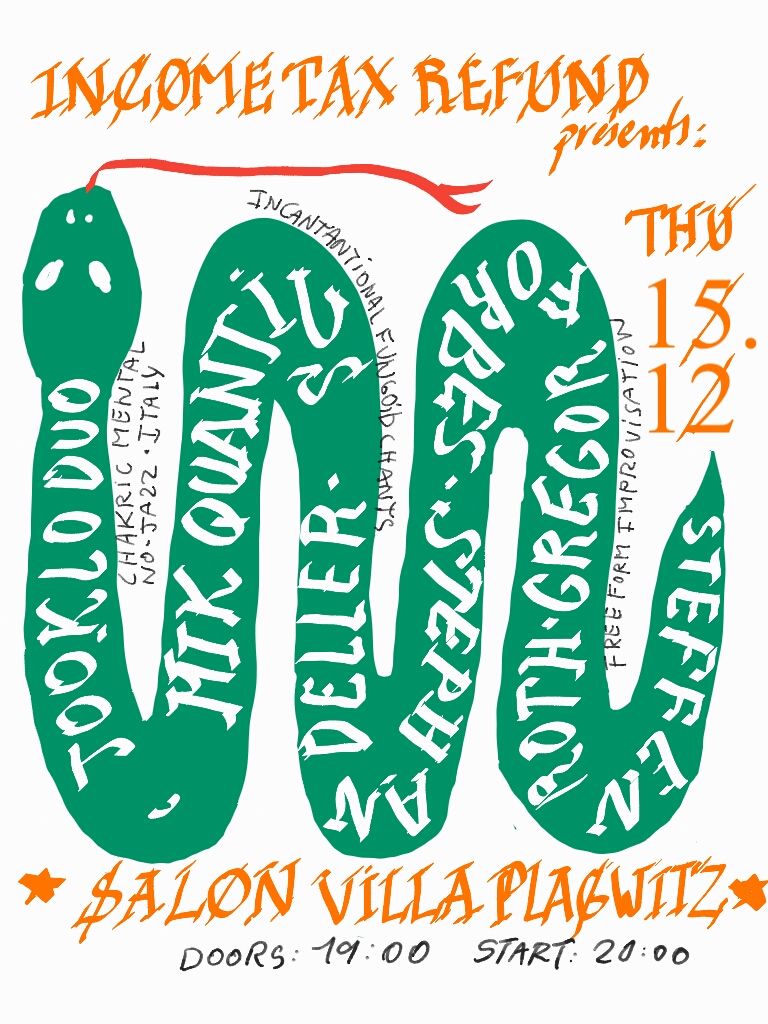 INCOME TAX REFUND
presents:
THU
15.
12
JOOKLO DUO
CHAKRIC MENTAL
NO-JAZZ · ITALY
MIK QUANTIUS
INCANTANTIONAL FUNGOID CHANTS
STEFFEN ROTH · GREGOR FORBES · STEPHAN DELLER ·
FREE FORM IMPROVISATION
SALON VILLA PLAGWITZ
DOORS: 19:00 START: 20:00